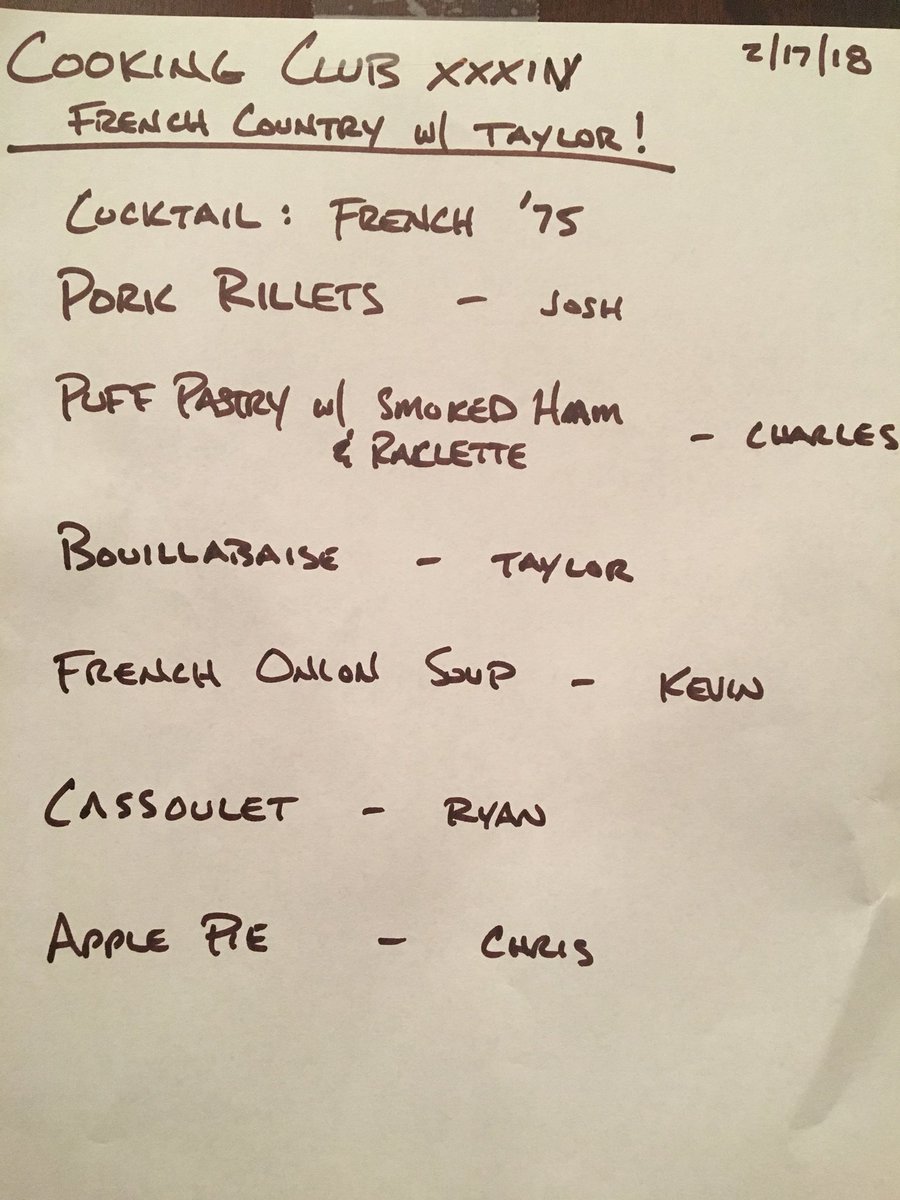 COOKING CLUB XXXIV
2/17/18
FRENCH COUNTRY W/ TAYLOR!
COCKTAIL: FRENCH '75
PORK RILLETS - JOSH
PUFF PASTRY W/ SMOKED HAM
& RACLETTE - CHARLES
BOUILLABAISE - TAYLOR
FRENCH ONION SOUP - KEVIN
CASSOULET - RYAN
APPLE PIE - CHRIS